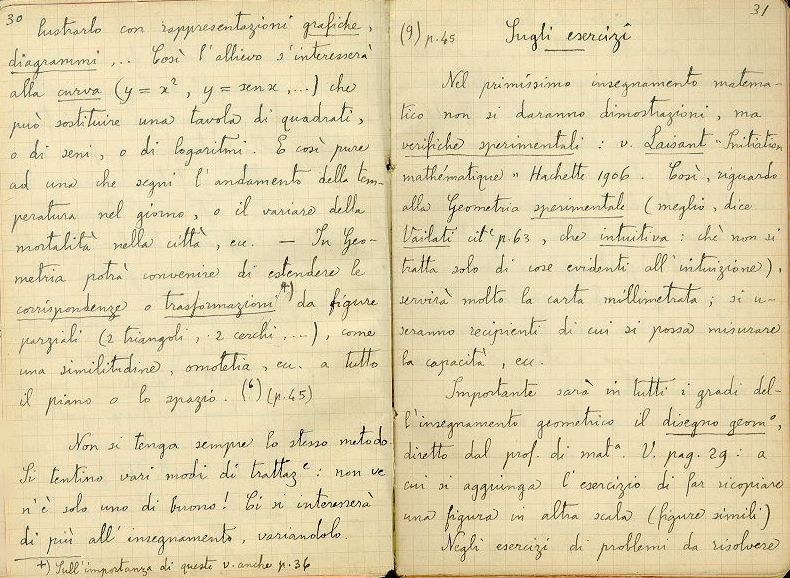 30
lustrarlo con rappresentazioni grafiche,
diagrammi,.. Così l'allievo s'interesserà
alla curva (y = x², y = sen x,...) che
può sostituire una tavola di quadrati,
o di seni, o di logaritmi. E così pure
ad una che segni l'andamento della tem-
peratura nel giorno, o il variare della
mortalità nella città, ecc. — In Geo-
metria potrà convenire di estendere le
corrispondenze o trasformazioni +) da figure
parziali (2 triangoli, 2 cerchi,...), come
una similitudine, omotetia, ecc. a tutto
il piano o lo spazio. (6) (p. 45)
Non si tenga sempre lo stesso metodo.
Si tentino vari modi di trattazᵉ: non ve
n'è solo uno di buono! Ci si interesserà
di più all'insegnamento, variandolo.
+) Sull'importanza di queste v. anche p. 36
31
(9) p. 45 Sugli esercizî
Nel primissimo insegnamento matema-
tico non si daranno dimostrazioni, ma
verifiche sperimentali: v. Laisant "Initiation
mathématique" Hachette 1906. Così, riguardo
alla Geometria sperimentale (meglio, dice
Vailati citᵗ p. 63, che intuitiva: chè non si
tratta solo di cose evidenti all'intuizione),
servirà molto la carta millimetrata; si u-
seranno recipienti di cui si possa misurare
la capacità, ecc.
Importante sarà in tutti i gradi del-
l'insegnamento geometrico il disegno geomᵒ,
diretto dal prof. di matᵃ. V. pag. 29: a
cui si aggiunga l'esercizio di far ricopiare
una figura in altra scala (figure simili)
Negli esercizi di problemi da risolvere